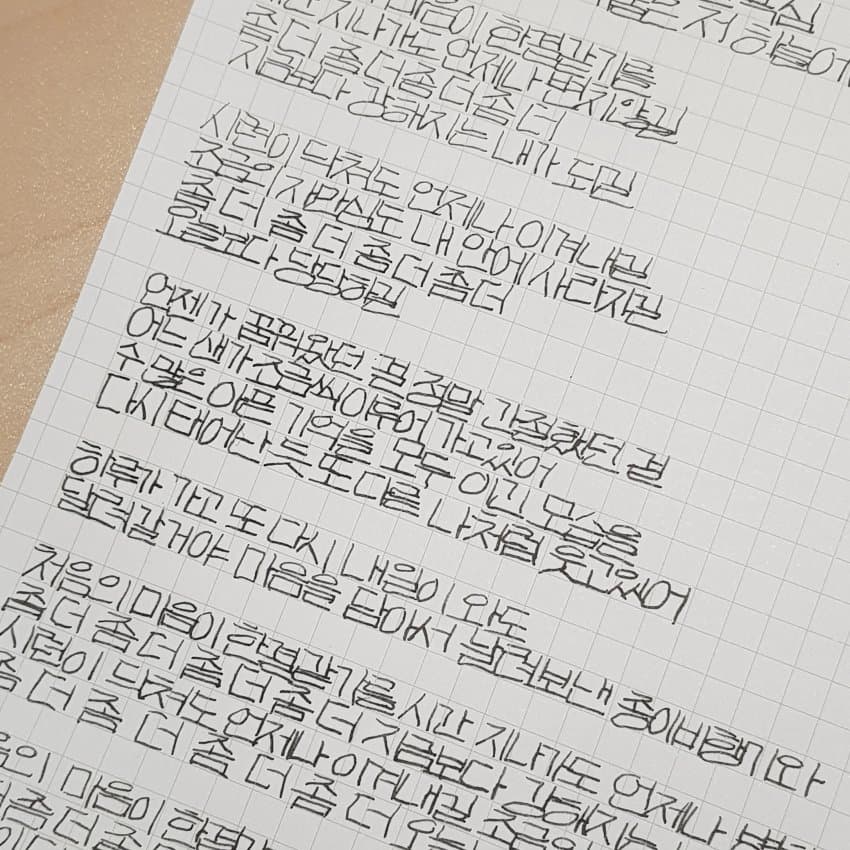 은 저 하늘에
마음이 한결같기를
시간 지나가도 언제나 변치않길
좀 더 좀 더 좀 더 좀 더
지금보다 강해지는 내가 되길
시련이 닥쳐도 언제나 이겨내길
조금의 자만심도 내 안에 사라지길
좀 더 좀 더 좀 더 좀 더
오늘보다 당당하길
언젠가 꿈꿔왔던 걸 정말 간절했던 걸
어느새가 조금씩 이루어 가고있어
수많은 아픈 기억을 모두 이긴 모습은
다시 태어난 듯 또 다른 나처럼 웃고있어
하루가 가고 또 다시 내일이 와도
달려갈거야 마음을 담아서 날려보낸 종이비행기와
처음의 마음이 한결같기를 시간 지나가도 언제나
좀 더 좀 더 좀 더 좀 더 지금보다 강해지는
시련이 닥쳐도 언제나 이겨내길 조금의
좀 더 좀 더 좀 더 좀 더
마음이
좀 더 좀